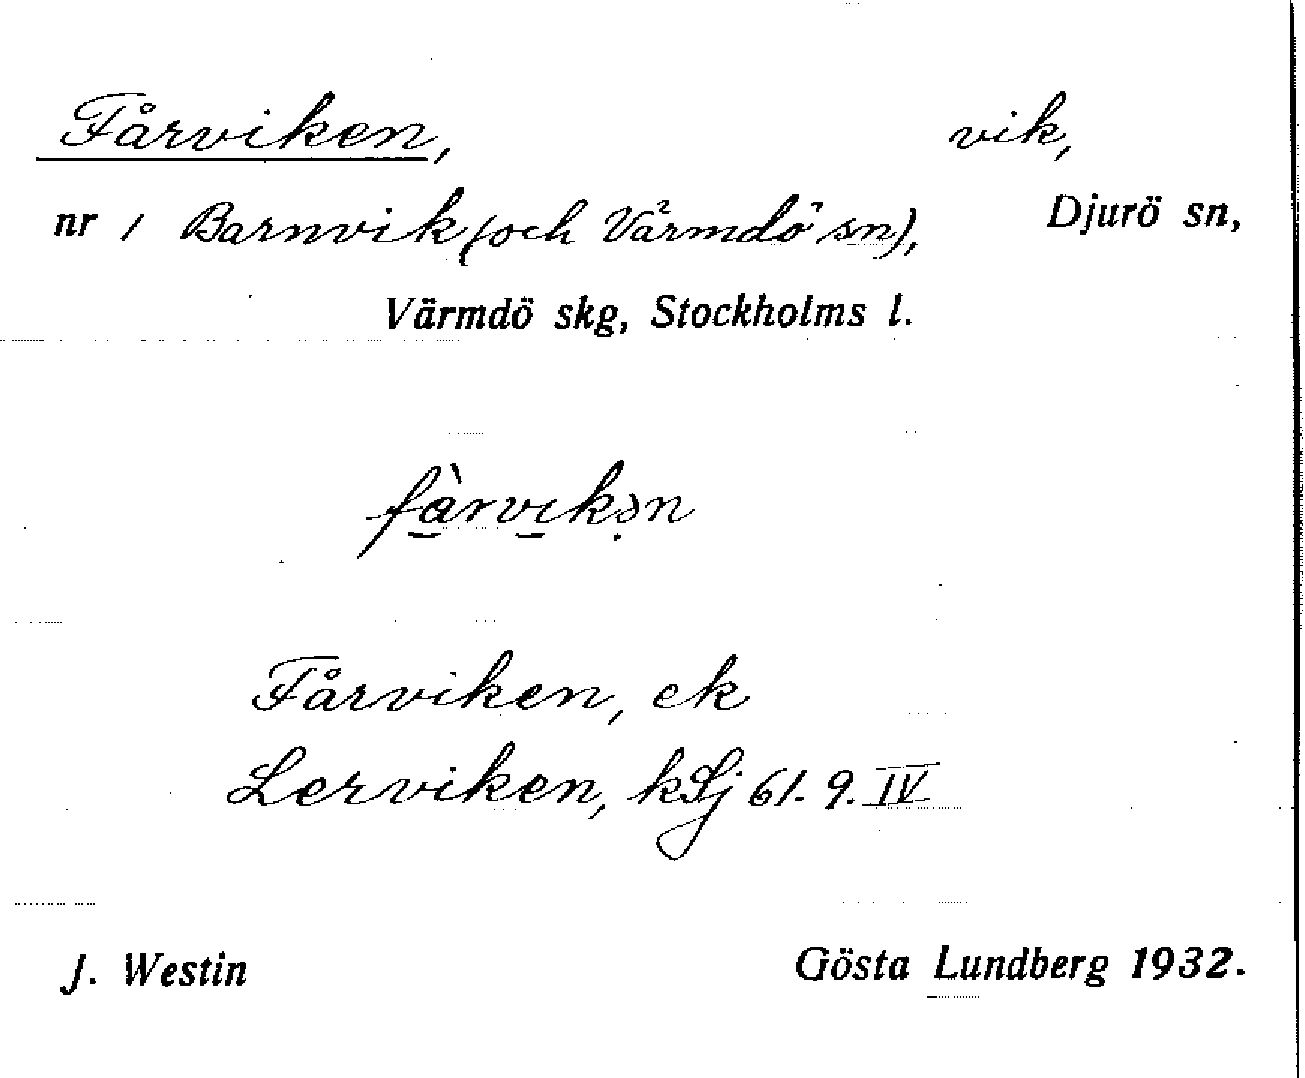 Fårviken, vik,
nr 1 Barnvik (och Värmdö sn), Djurö sn,
Värmdö skg, Stockholms l.
fàrvikən
Fårviken, ek
Lerviken, kSj 61. 9. IV
J. Westin Gösta Lundberg 1932.